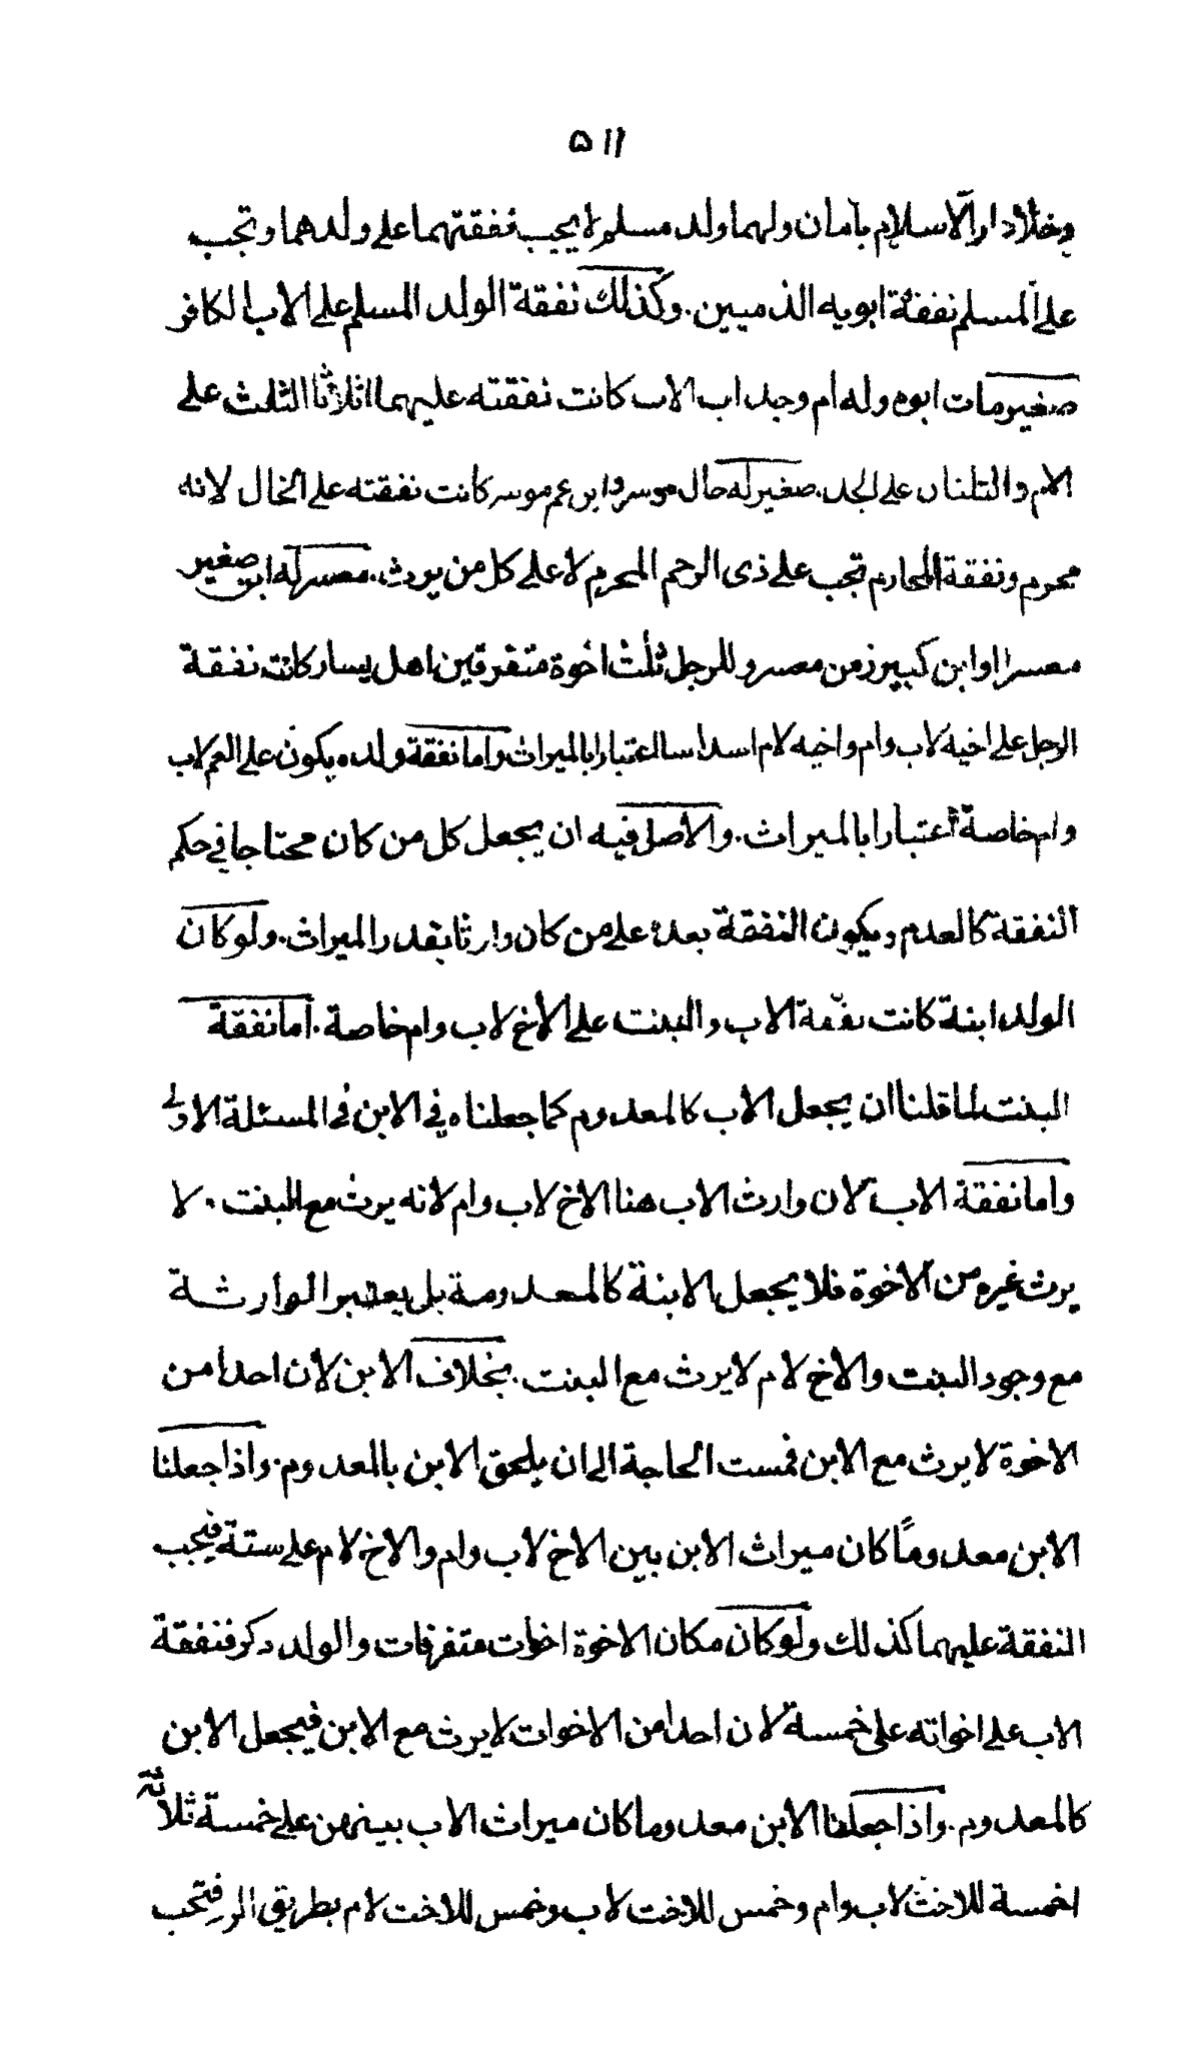 ۵۱۱
دخلا دار الاسلام بامان ولهما ولد مسلم لا يجب نفقتهما على ولدهما وتجب
على المسلم نفقة ابويه الذميين. وكذلك نفقة الولد المسلم على الاب الكافر
صغير مات ابوه وله ام وجد اب الاب كانت نفقته عليهما اثلاثا الثلث على
الام والثلثان على الجد. صغير له خال موسر وابن عم موسر كانت نفقته على الخال لانه
محرم ونفقة المحارم تجب على ذى الرحم المحرم لا على كل من يرث. معسر له ابن صغير
معسرا او ابن كبير زمن معسر وللرجل ثلث اخوة متفرقين اهل يسار كانت نفقة
الرجل على اخيه لاب وام واخيه لام اسداسا اعتبارا بالميراث واما نفقة ولده يكون على العم لاب
وام خاصة اعتبارا بالميراث. والاصل فيه ان يجعل كل من كان محتاجا في حكم
النفقة كالعدم ويكون النفقة بعده على من كان وارثا بقدر الميراث. ولو كان
الولد ابنة كانت نفقة الاب والبنت على الاخ لاب وام خاصة. اما نفقة
البنت لما قلنا ان يجعل الاب كالمعدوم كما جعلناه في الابن فى المسئلة الاولى
واما نفقة الاب لان وارث الاب هنا الاخ لاب وام لانه يرث مع البنت. لا
يرث غيره من الاخوة فلا يجعل الابنة كالمعدومة بل يعتبر الوارثة
مع وجود البنت والاخ لام لا يرث مع البنت. بخلاف الابن لان احدا من
الاخوة لا يرث مع الابن فمست الحاجة الى ان يلحق الابن بالمعدوم. واذا جعلنا
الابن معدوماً كان ميراث الابن بين الاخ لاب وام والاخ لام على ستة فيجب
النفقة عليهما كذلك ولو كان مكان الاخوة اخوات متفرقات والولد ذكر فنفقة
الاب على اخواته على خمسة لان احدا من الاخوات لا يرث مع الابن فيجعل الابن
كالمعدوم. واذا جعلنا الابن معدوما كان ميراث الاب بينهن على خمسة ثلاثة
اخمسة للاخت لاب وام وخمس للاخت لاب وخمس للاخت لام بطريق الرد فتجب